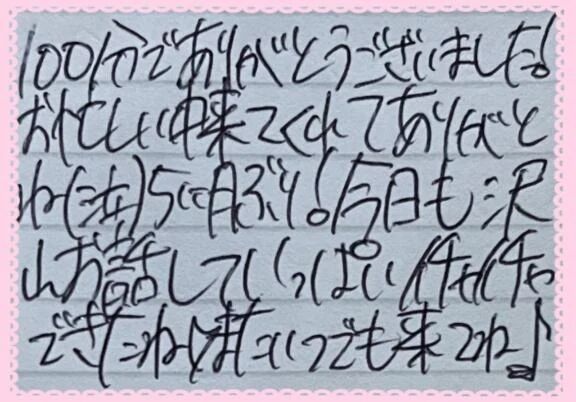 100分でありがとうございました!
お忙しい中来てくれてありがと
ね(泣)5ヶ月ぶり!今日も沢
山お話していっぱいイチャイチャ
できたねまたいつでも来てね♪